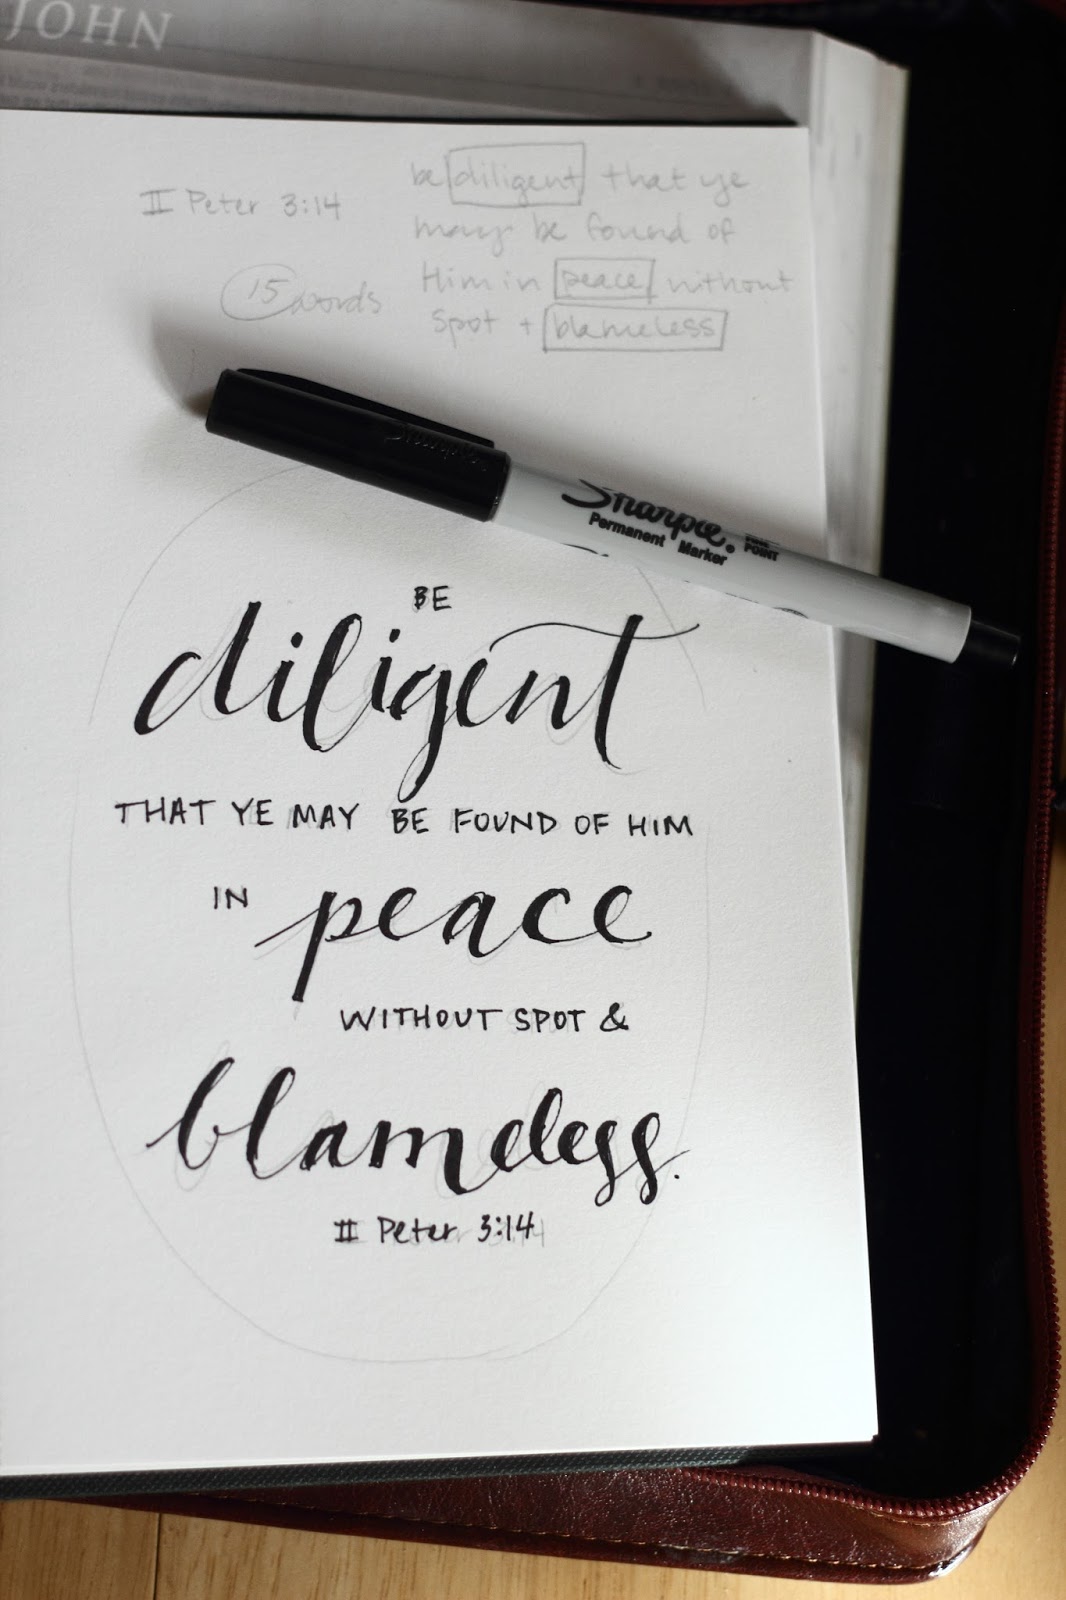 JOHN
II Peter 3:14
15 words
be diligent that ye
may be found of
Him in peace without
spot + blameless
Sharpie
Sharpie.
Permanent Marker
FINE
POINT
BE
diligent
THAT YE MAY BE FOUND OF HIM
IN peace
WITHOUT SPOT &
blameless.
II Peter 3:14